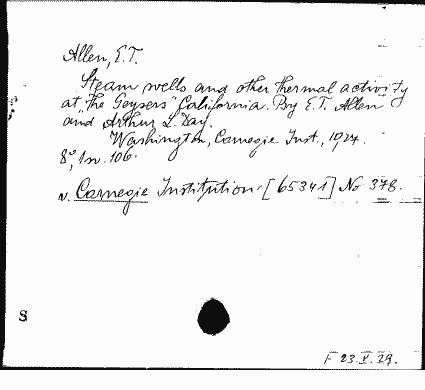 Allen, E.T.
Steam wells and other thermal activity
at "the Geysers" California. By E.T. Allen
and Arthur L. Day.
Washington, Carnegie Inst., 1924.
8°, 106.
v. Carnegie Institution. [65341] No 378.
S
F 23.V.29.